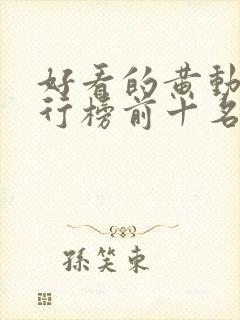 好看的黄動
行榜前十名
孫笑東